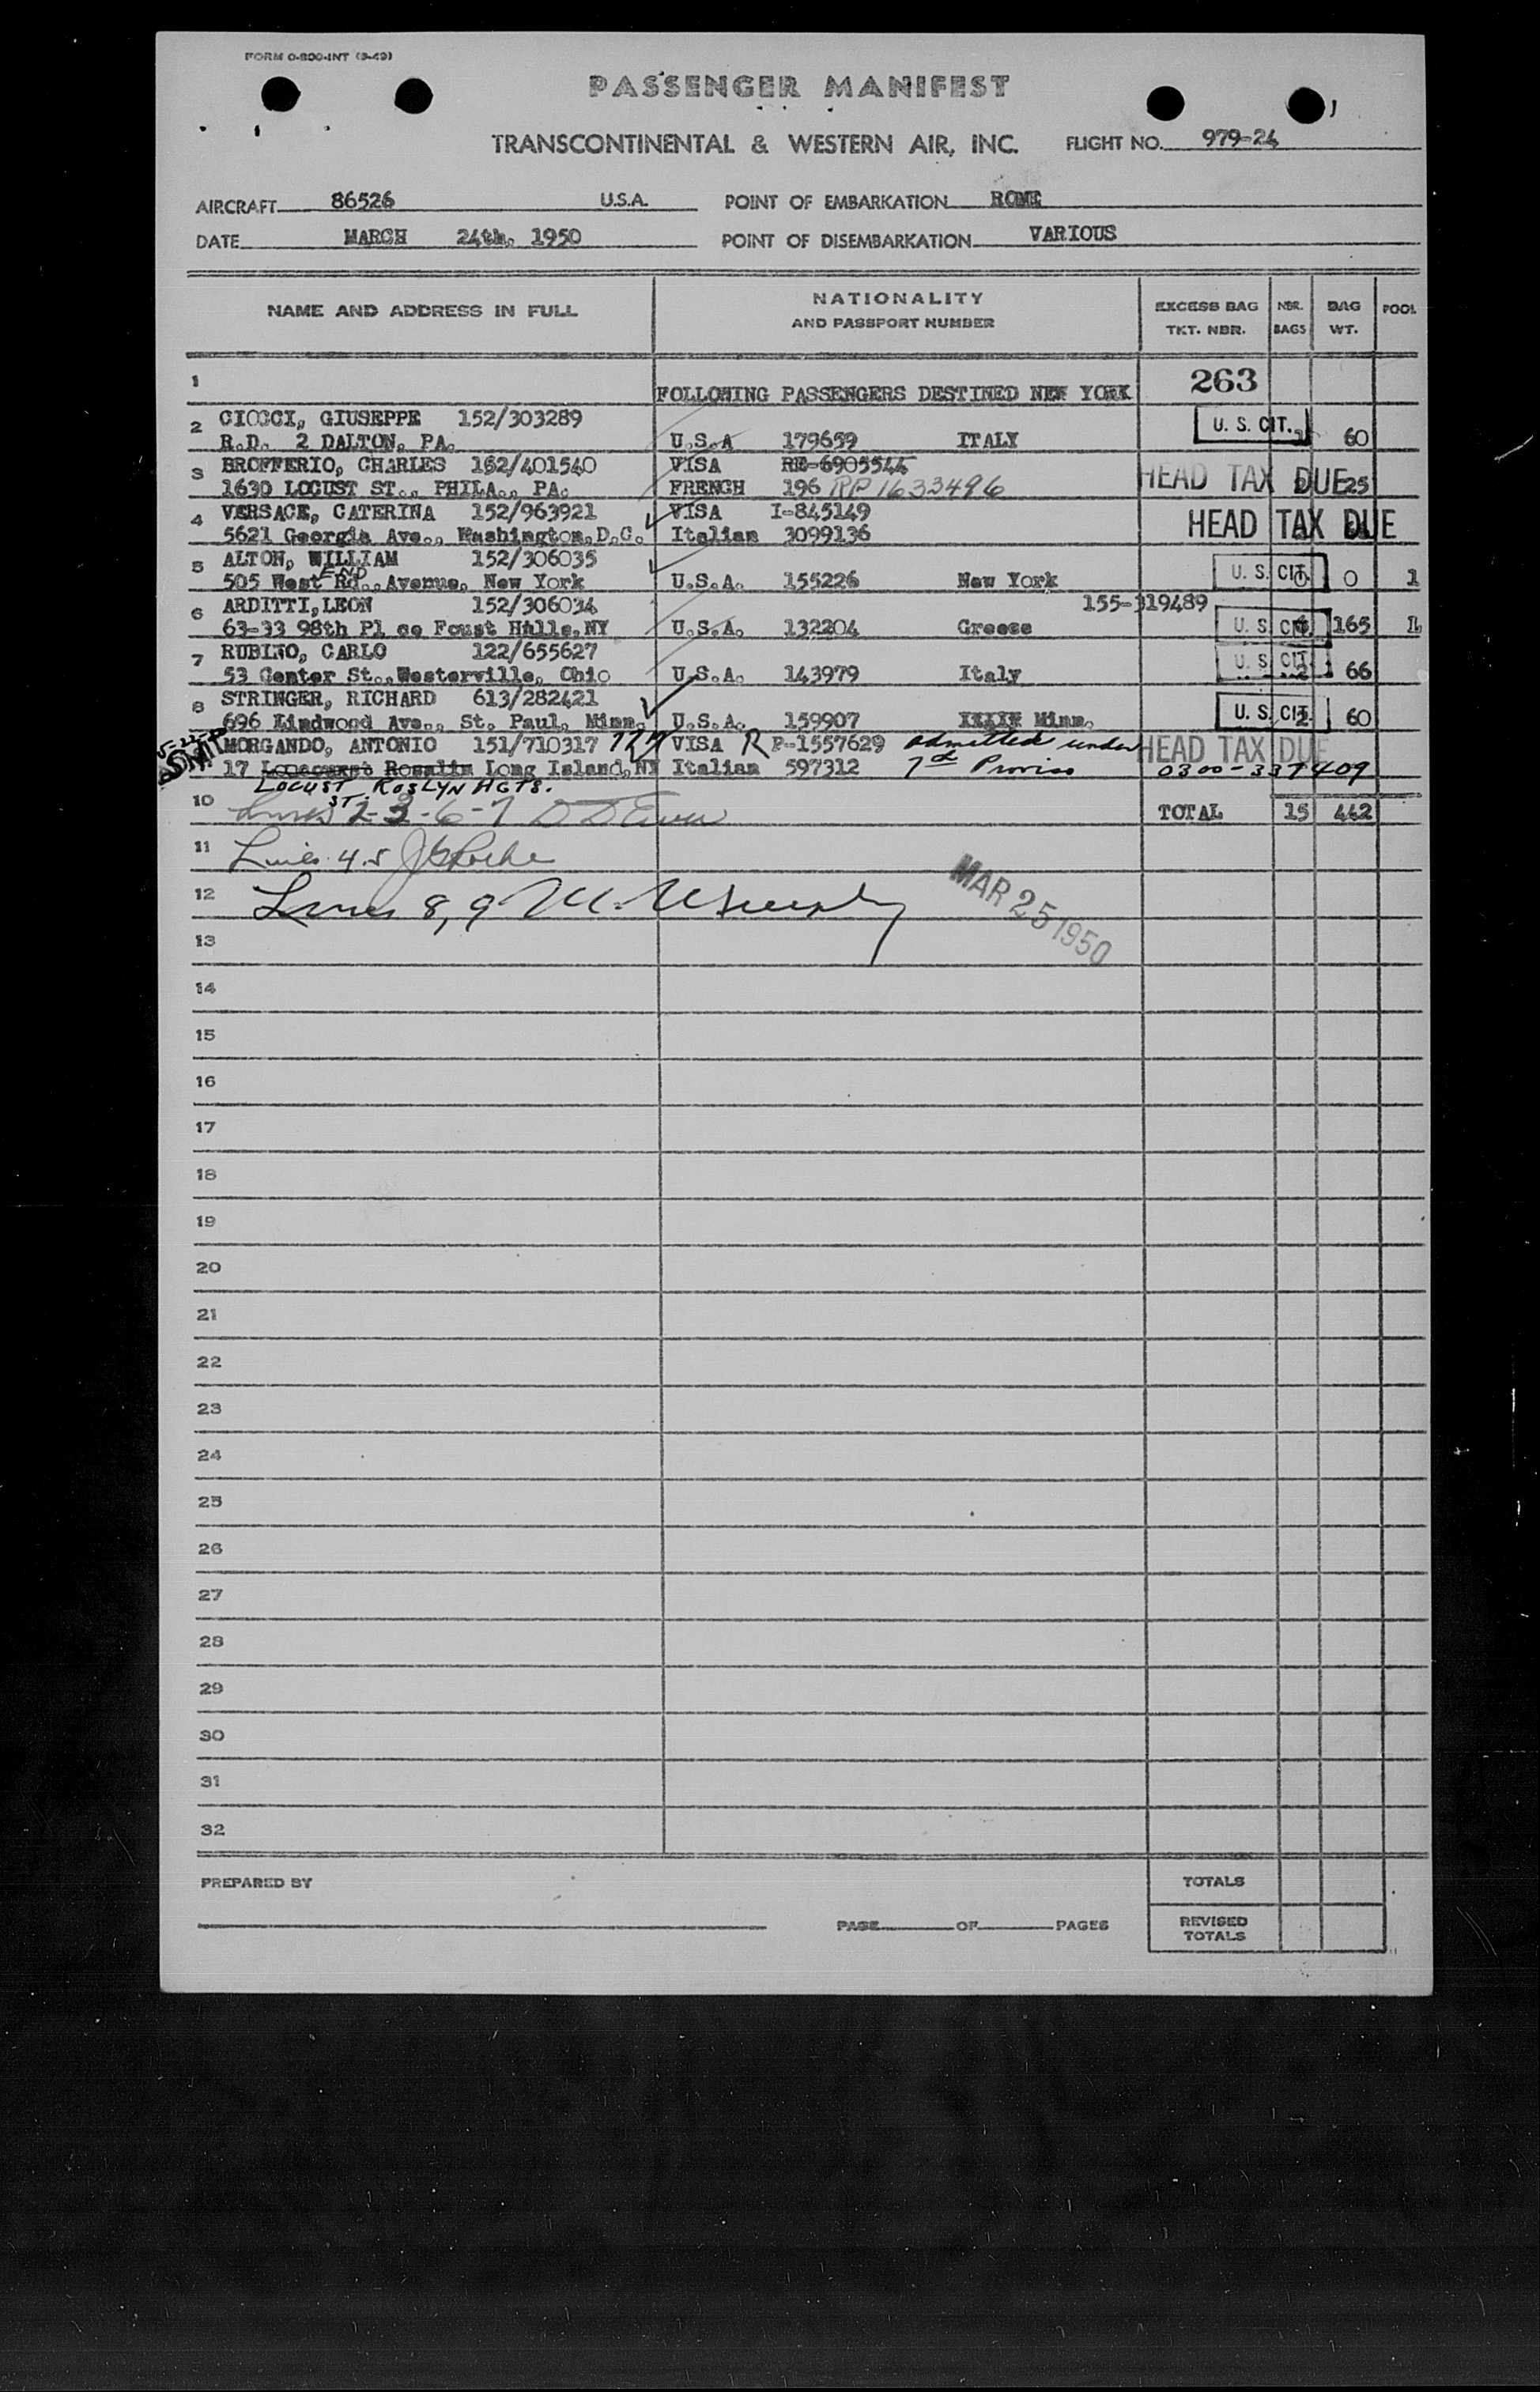 FORM O-800-INT (3-49)
PASSENGER MANIFEST
TRANSCONTINENTAL & WESTERN AIR, INC. FLIGHT NO. 979-24
AIRCRAFT 86526 U.S.A. POINT OF EMBARKATION ROME
DATE MARCH 24th. 1950 POINT OF DISEMBARKATION VARIOUS
NAME AND ADDRESS IN FULL NATIONALITY AND PASSPORT NUMBER EXCESS BAG TKT. NBR. NBR. BAGS BAG WT. POOL
1 FOLLOWING PASSENGERS DESTINED NEW YORK 263
2 CIOCCI, GIUSEPPE 152/303289 U. S. CIT.
R.D. 2 DALTON, PA. U.S.A 179659 ITALY 60
3 BROFFERIO, CHARLES 152/401540 VISA RE-6905544 HEAD TAX DUE
1630 LOCUST ST., PHILA., PA. FRENCH 196 RP 1633496 25
4 VERSACE, CATERINA 152/963921 VISA I-845149 HEAD TAX DUE
5621 Georgia Ave., Washington, D.C. Italian 3099136
5 ALTON, WILLIAM 152/306035 U. S. CIT.
505 West END Rd., Avenue, New York U.S.A. 155226 New York 0 0 1
6 ARDITTI, LEON 152/306034 155-319489
63-33 98th Pl ce Foust Hills, NY U.S.A. 132204 Greece U. S. CIT. 165 1
7 RUBINO, CARLO 122/655627 U. S. CIT.
53 Center St., Westerville, Ohio U.S.A. 143979 Italy 2 66
8 STRINGER, RICHARD 613/282421 U. S. CIT.
696 Lindwood Ave., St. Paul, Minn. U.S.A. 159907 XXXXX Minn. 2 60
MORGANDO, ANTONIO 151/710317 VISA R P-1557629 admitted under HEAD TAX DUE
17 Rosalin Long Island, NY Italian 597312 7th Proviso 0300-337409
LOCUST ST. ROSLYN HGTS.
10 Lines 2-3-6-7 TOTAL 15 442
11 Lines 4.5
12 Lines 8,9
MAR 25 1950
13
14
15
16
17
18
19
20
21
22
23
24
25
26
27
28
29
30
31
32
PREPARED BY TOTALS
PAGE OF PAGES REVISED TOTALS